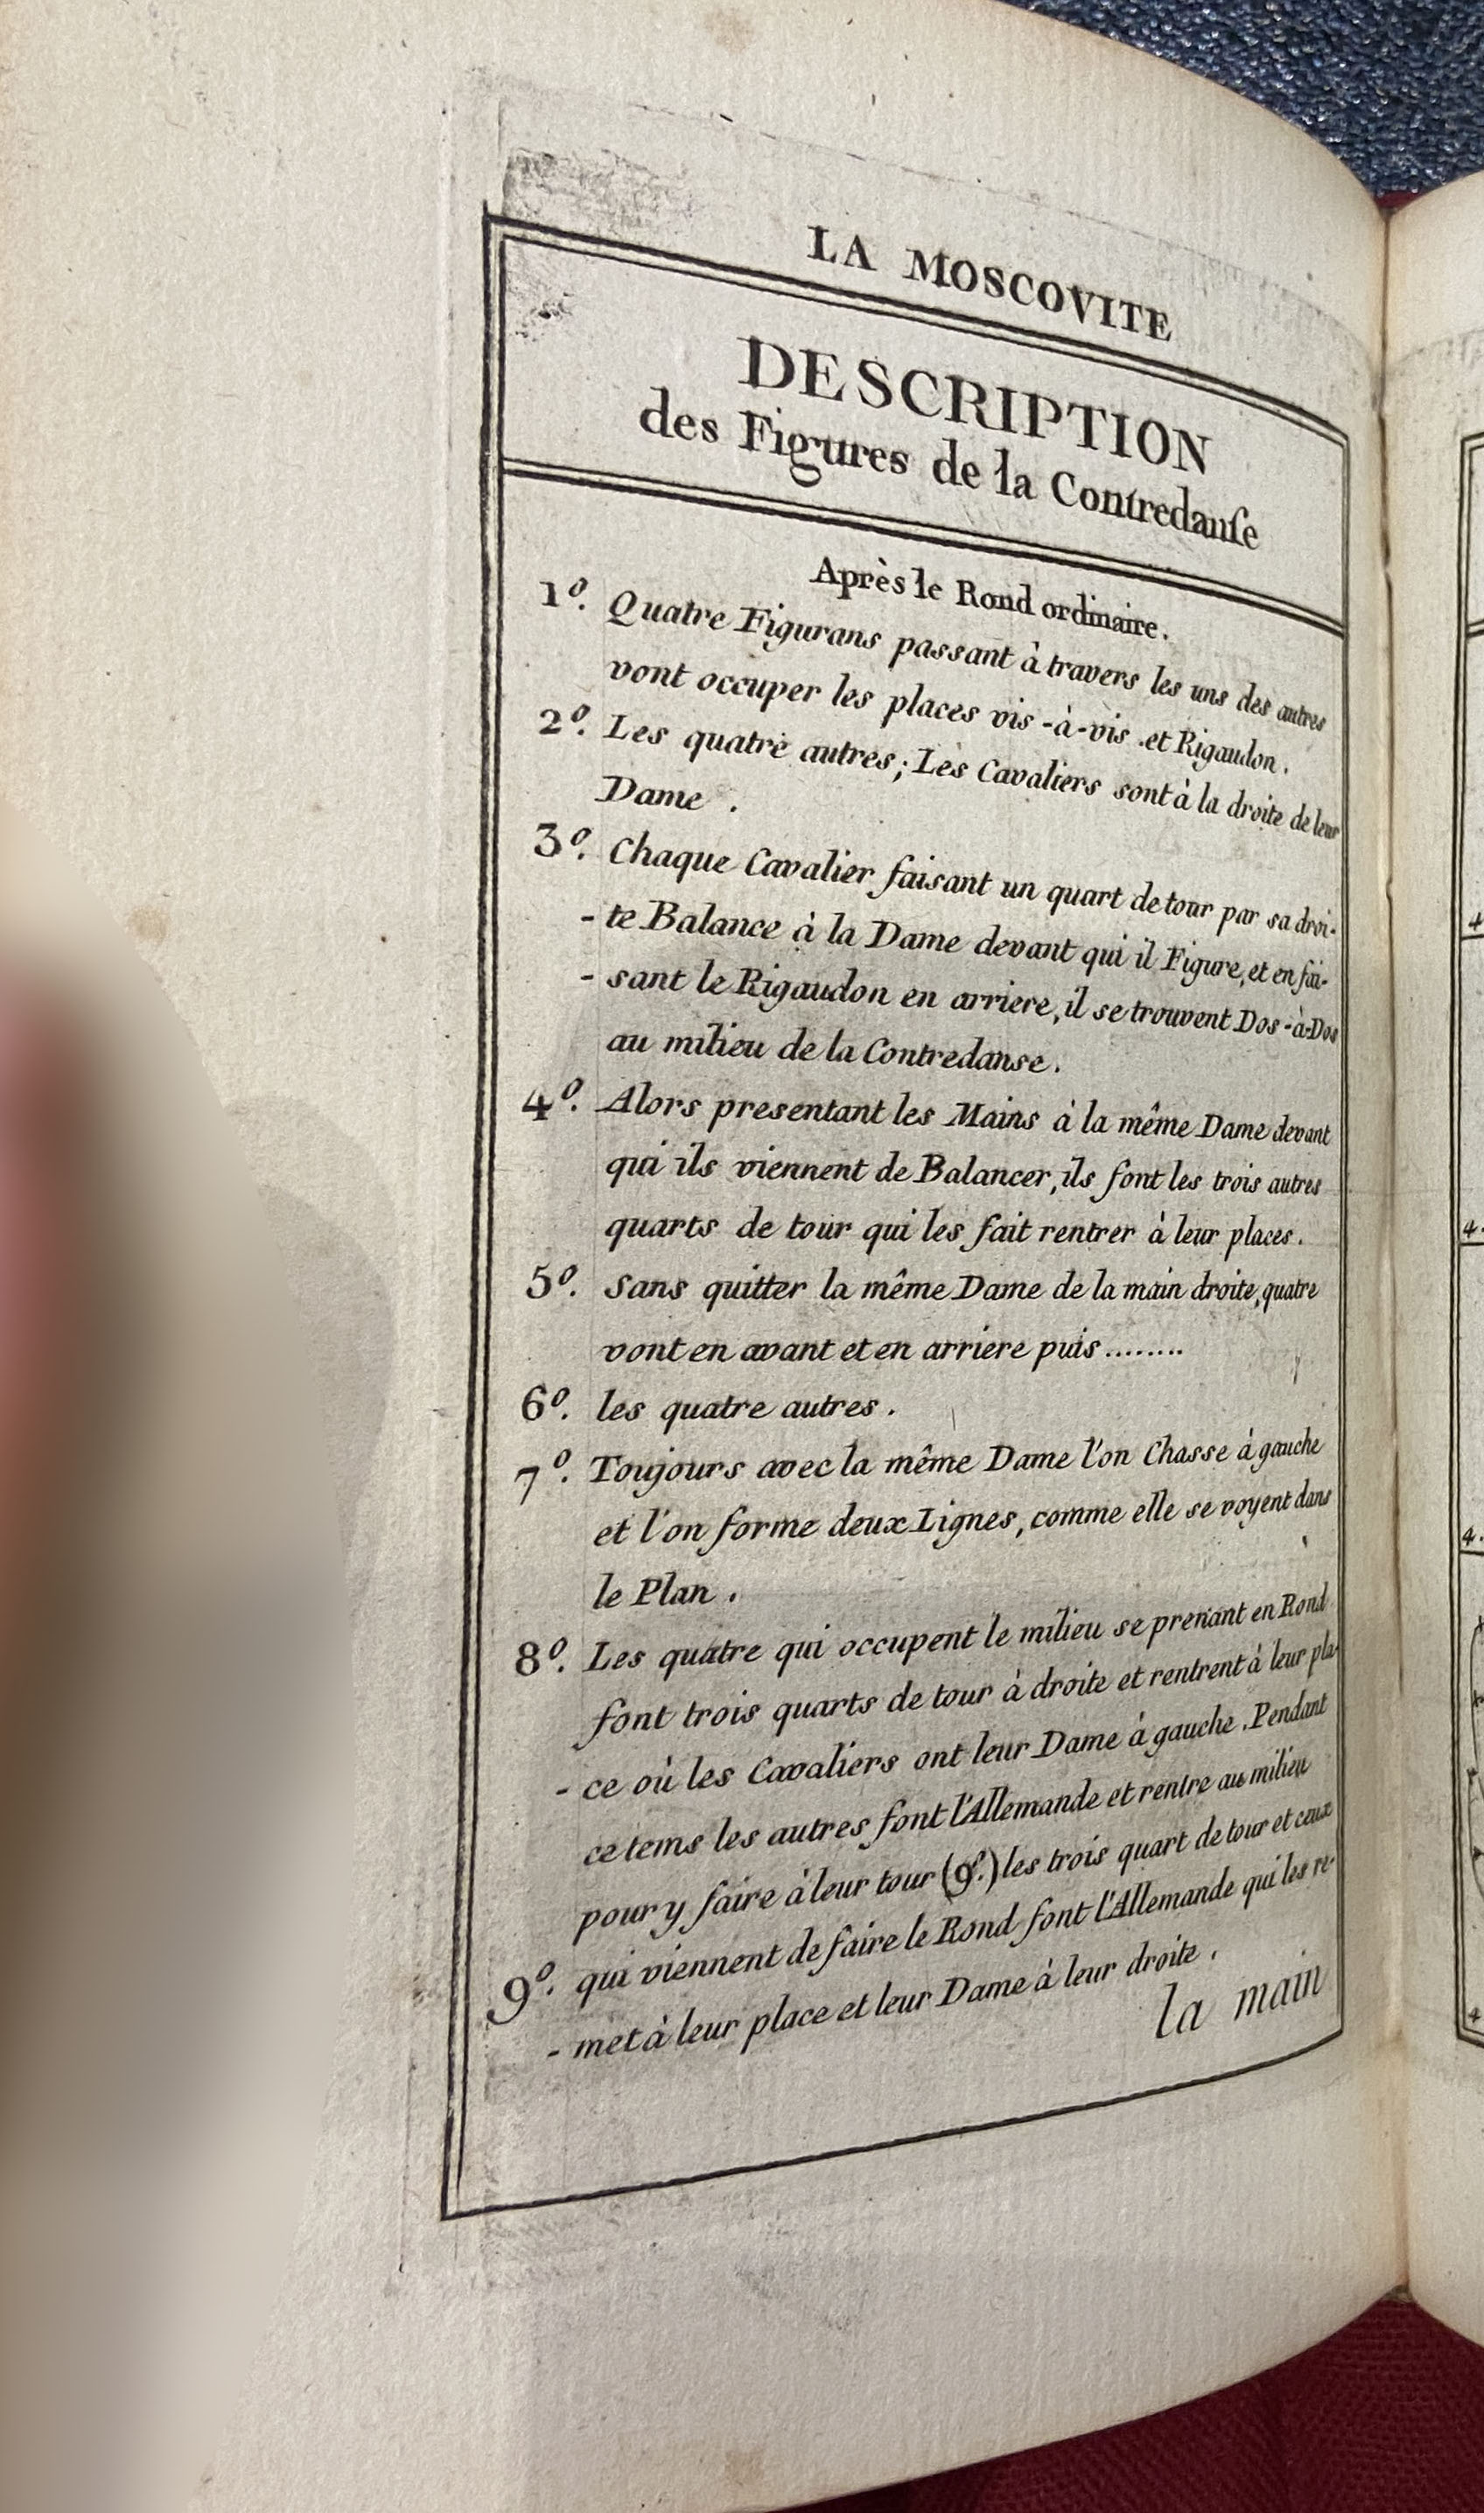 LA MOSCOVITE
DESCRIPTION
des Figures de la Contredanſe
Après le Rond ordinaire.
1º. Quatre Figurans passant à travers les uns des autres
vont occuper les places vis-à-vis et Rigaudon.
2º. Les quatre autres; Les Cavaliers sont à la droite de leur
Dame.
3º. Chaque Cavalier faisant un quart de tour par sa droi-
-te Balance à la Dame devant qui il Figure, et en fai-
-sant le Rigaudon en arriere, il se trouvent Dos-à-Dos
au milieu de la Contredanse.
4º. Alors presentant les Mains à la même Dame devant
qui ils viennent de Balancer, ils font les trois autres
quarts de tour qui les fait rentrer à leur places.
5º. Sans quitter la même Dame de la main droite, quatre
vont en avant et en arriere puis........
6º. les quatre autres.
7º. Toujours avec la même Dame l'on Chasse à gauche
et l'on forme deux Lignes, comme elle se voyent dans
le Plan.
8º. Les quatre qui occupent le milieu se prenant en Rond
font trois quarts de tour à droite et rentrent à leur pla-
-ce où les Cavaliers ont leur Dame à gauche. Pendant
ce tems les autres font l'Allemande et rentre au milieu
pour y faire à leur tour (9º.) les trois quart de tour et ceux
9º. qui viennent de faire le Rond font l'Allemande qui les re-
-met à leur place et leur Dame à leur droite.
la main
4
4.
4.
4